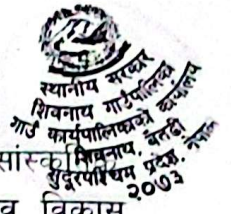 स्थानीय सरकार
शिवनाथ गाउँपालिका
गाउँ कार्यपालिकाको कार्यालय
शिवनाथ, बैतडी
सुदूरपश्चिम प्रदेश, नेपाल
२०७३
सांस्कृ
व विकास